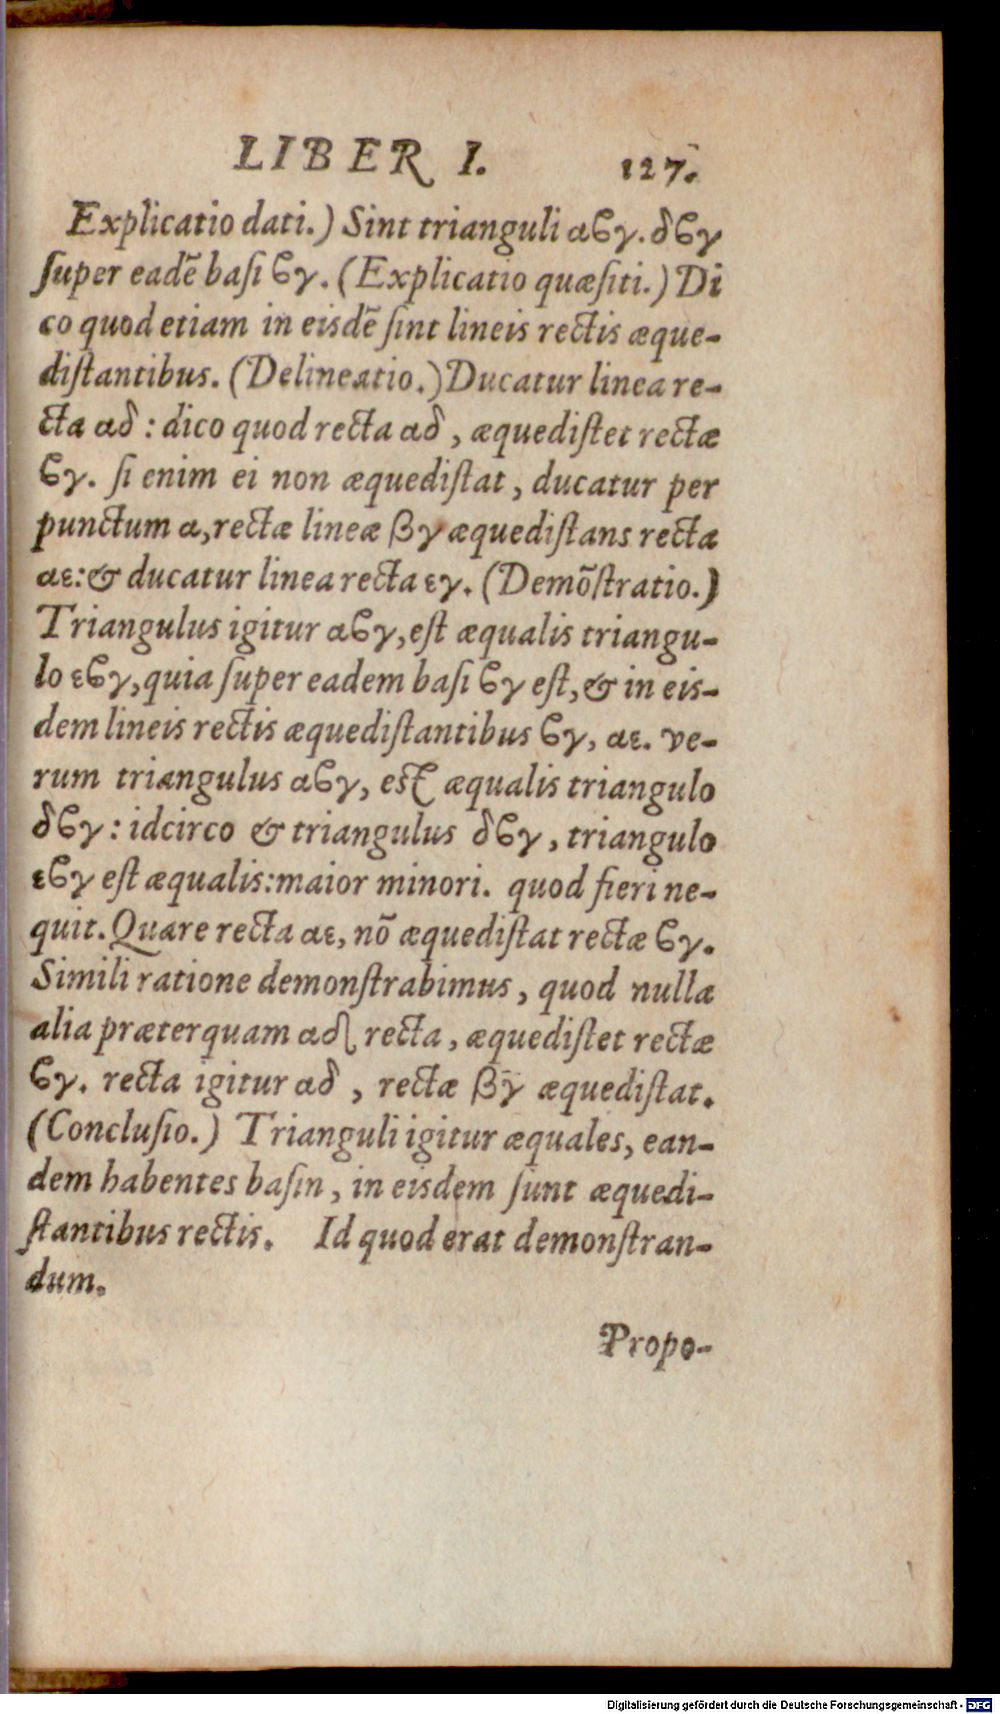 LIBER I. 127.
Explicatio dati.) Sint trianguli αϐγ. δϐγ
ſuper eadē baſi ϐγ. (Explicatio quæſiti.) Di
co quod etiam in eisdē ſint lineis rectis æque-
diſtantibus. (Delineatio.) Ducatur linea re-
cta αδ : dico quod recta αδ , æquediſtet rectæ
ϐγ. ſi enim ei non æquediſtat , ducatur per
punctum α, rectæ lineæ βγ æquediſtans recta
αε: & ducatur linea recta εγ. (Demōſtratio.)
Triangulus igitur αϐγ, eſt æqualis triangu-
lo εϐγ, quia ſuper eadem baſi ϐγ eſt, & in eis-
dem lineis rectis æquediſtantibus ϐγ, αε. ve-
rum triangulus αϐγ, eſt æqualis triangulo
δϐγ : idcirco & triangulus δϐγ , triangulo
εϐγ eſt æqualis: maior minori. quod fieri ne-
quit. Quare recta αε, nō æquediſtat rectæ ϐγ.
Simili ratione demonſtrabimus , quod nulla
alia præterquam αδ recta , æquediſtet rectæ
ϐγ. recta igitur αδ , rectæ βγ æquediſtat.
(Concluſio.) Trianguli igitur æquales, ean-
dem habentes baſin , in eisdem ſunt æquedi-
ſtantibus rectis. Id quod erat demonſtran-
dum.
Propo-
Digitalisierung gefördert durch die Deutsche Forschungsgemeinschaft - DFG